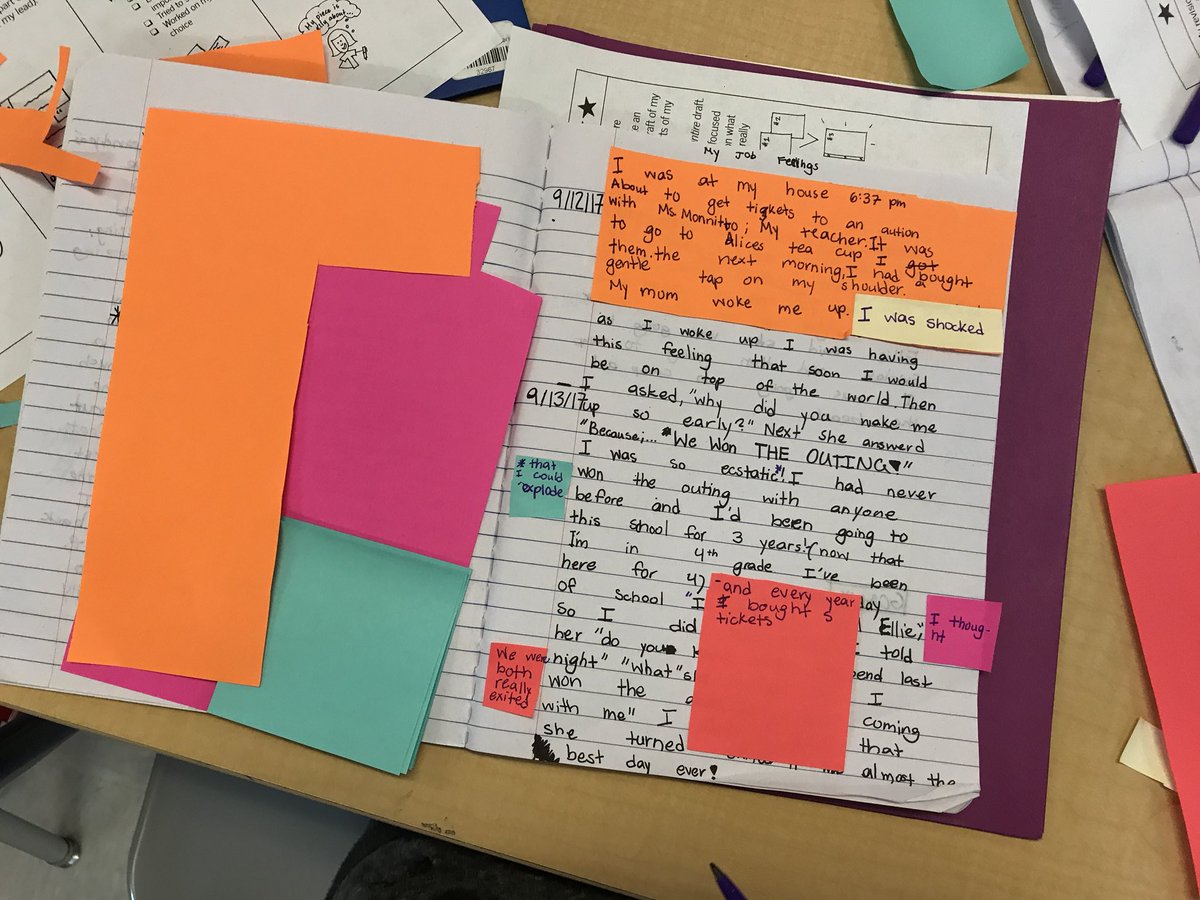 part
my lead).
impo
Tried to
Worked on my
choice
My piece is
really about...
32967
re
e an
raft of my
ts of my
ntire draft.
focused
in what
really
#1
#2
#3
My Job Feelings
I was at my house 6:37 pm
About to get tickets to an aution
with Ms. Monnitto; My teacher. It was
to go to Alices tea cup I got bought
them. the next morning, I had a
gentle tap on my shoulder.
My mum woke me up.
I was shocked
9/12/17
as I woke up I was having
this feeling that soon I would
be on top of the world. Then
9/13/17
I asked, "why did you wake me
up so early?" Next she answerd
"Because;... We Won THE OUTING"
I was so ecstatic*! I had never
won the outing with anyone
before and I'd been going to
this shool for 3 years! (now that
I'm in 4th grade I've been
here for 4)
of school "I day
so I did Ellie,"
her "do you told
night" "What" end last
won the I
with me" I coming
she turned that
almost the
best day ever!
* that
I could
explode
-and every year
I bought 5
tickets
I thoug-
ht
We were
both
really
exited